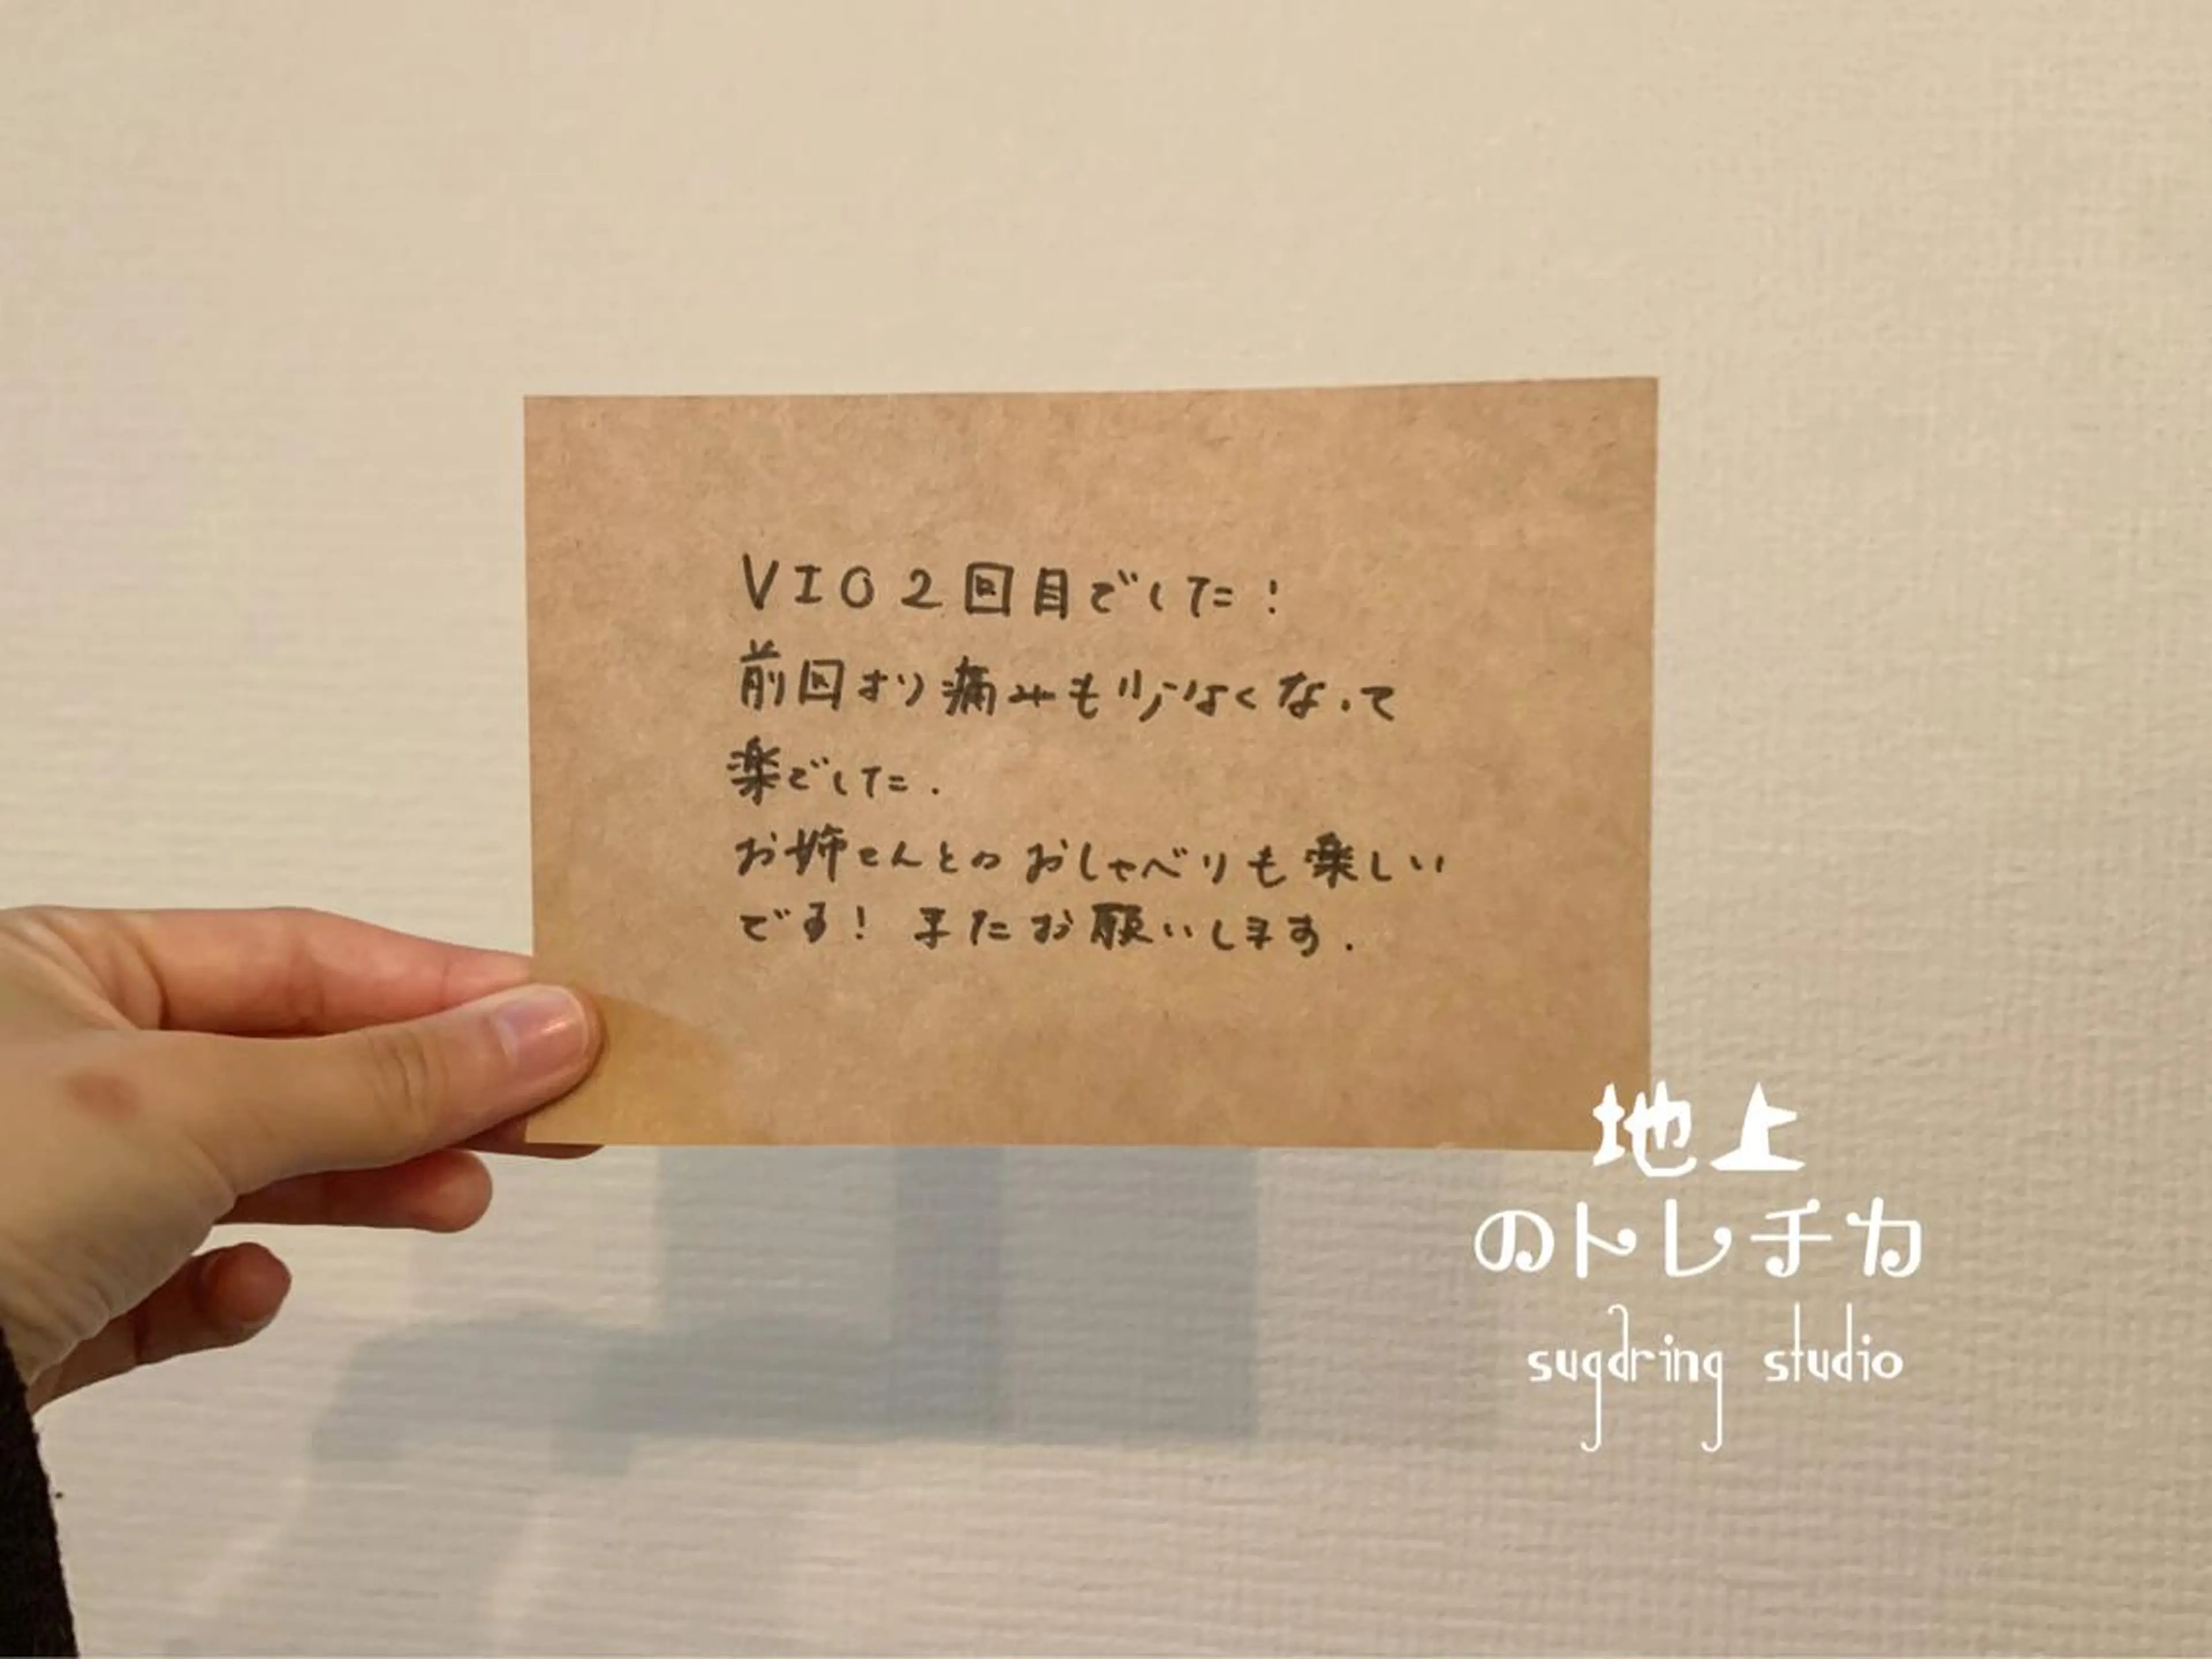 VIO2回目でした!
前回より痛みも少なくなって
楽でした.
お姉さんとのおしゃべりも楽しい
です! またお願いします.
地上
のトレチカ
sugaring studio